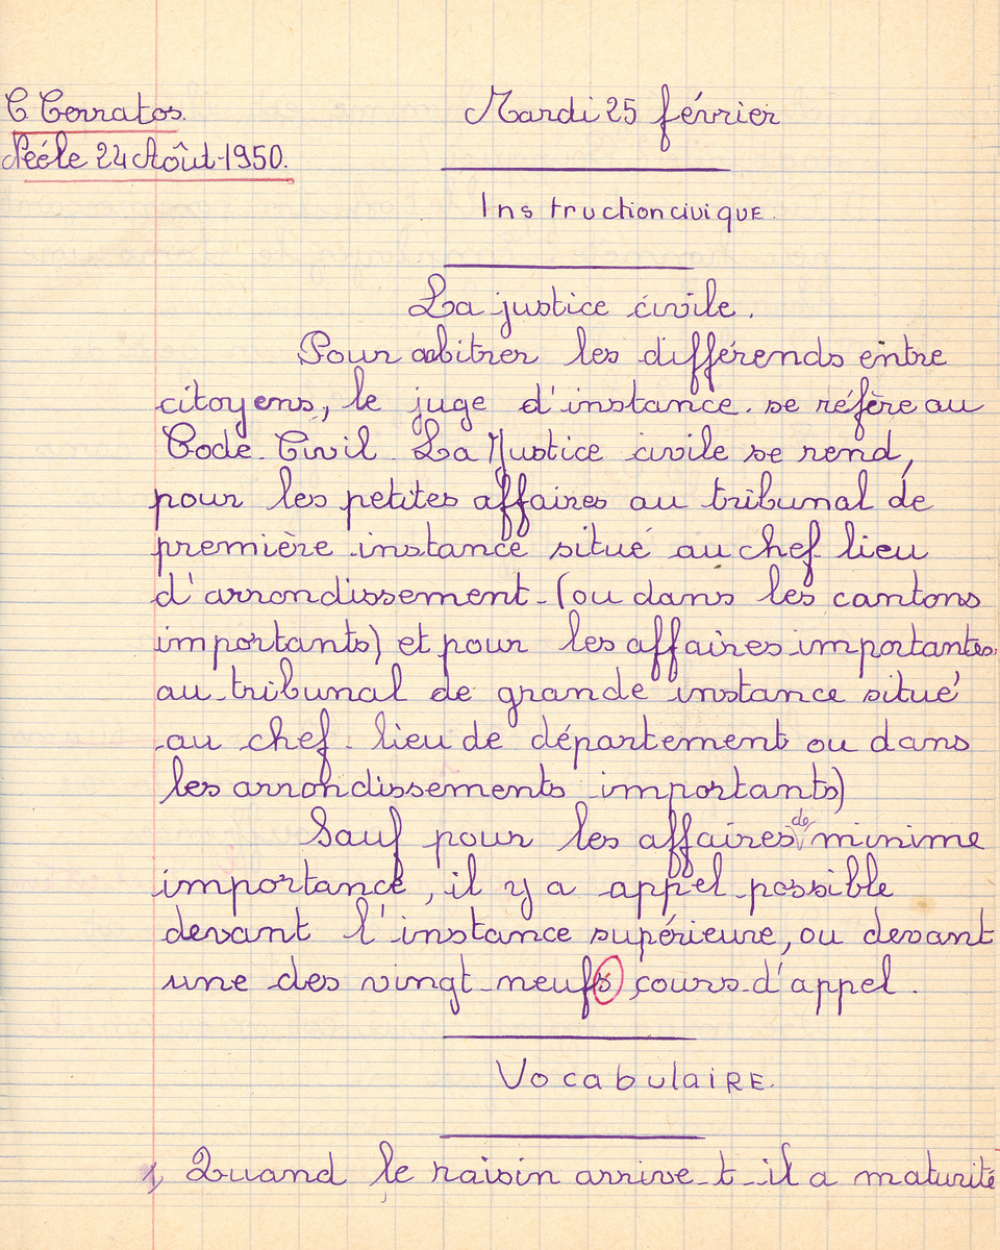 C. Cerratos.
Mardi 25 février
Née le 24 Août 1950.
Instruction civique.
La justice civile.
Pour arbitrer les différends entre
citoyens, le juge d'instance. se réfère au
Code. Civil. La Justice civile se rend,
pour les petites affaires au tribunal de
première instance situé au chef lieu
d'arrondissement (ou dans les cantons
importants) et pour les affaires importantes
au tribunal de grande instance situé
au chef-lieu de département ou dans
les arrondissements importants)
Sauf pour les affaires de minime
importance, il y a appel possible
devant l'instance supérieure, ou devant
une des vingt neufs cours d'appel.
Vocabulaire.
1, Quand le raisin arrive-t-il a maturité